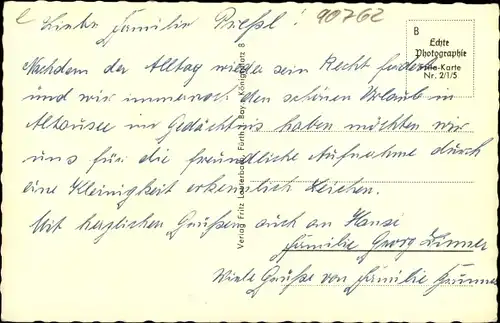 Liebe Familie Prießl! 90762
Nachdem der Alltag wieder sein Recht fordert
und wir immer noch den schönen Urlaub in
Altaussee im Gedächtnis haben möchten wir
uns für die freundliche Aufnahme durch
eine Kleinigkeit erkenntlich zeichen.
Mit herzlichen Grüßen auch an Hansi
Familie Georg
Viele Grüße von Familie
B
Echte
Photographie
Nr. 2/1/5
Verlag Fritz Lauterbach, Fürth i. Bay., Königsplatz 8